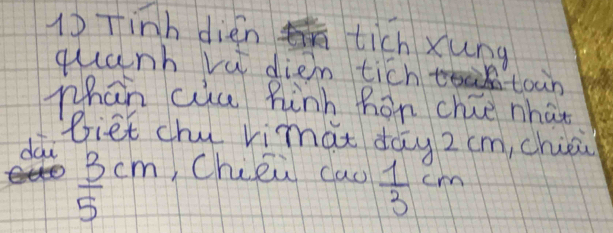 1) Tính diện tích xung
quanh và diện tích toàn
phần của hình hộp chữ nhật
biết chu vi mặt đáy 2 cm, chiều
dài 3/5 cm, chiều cao 1/3 cm